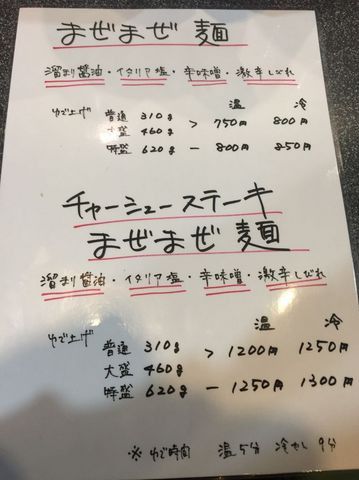 まぜまぜ 麺
溜まり醤油・イタリア塩・辛味噌・激辛しびれ
温 冷
ゆで上げ 普通 310g > 750円 800円
大盛 460g
特盛 620g － 800円 850円
チャーシューステーキ
まぜまぜ 麺
溜まり醤油・イタリア塩・辛味噌・激辛しびれ
温 冷
ゆで上げ
普通 310g > 1200円 1250円
大盛 460g
特盛 620g － 1250円 1300円
※ ゆで時間 温 5分 冷やし 9分